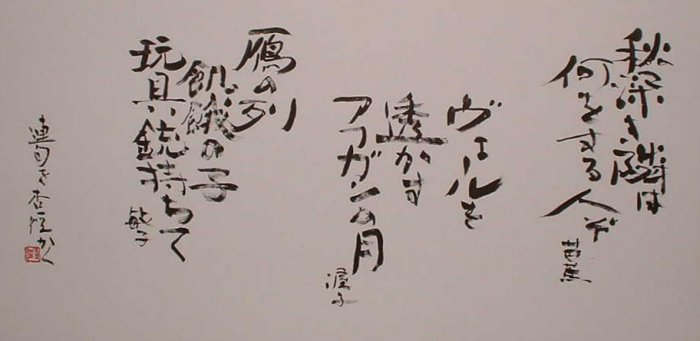 秋深き隣は
何をする人ぞ
芭蕉
ヴェールを
透かす
アフガンの月
渥子
雁の列
飢餓の子
玩具の銃持ちて
敏子
連句を
かく